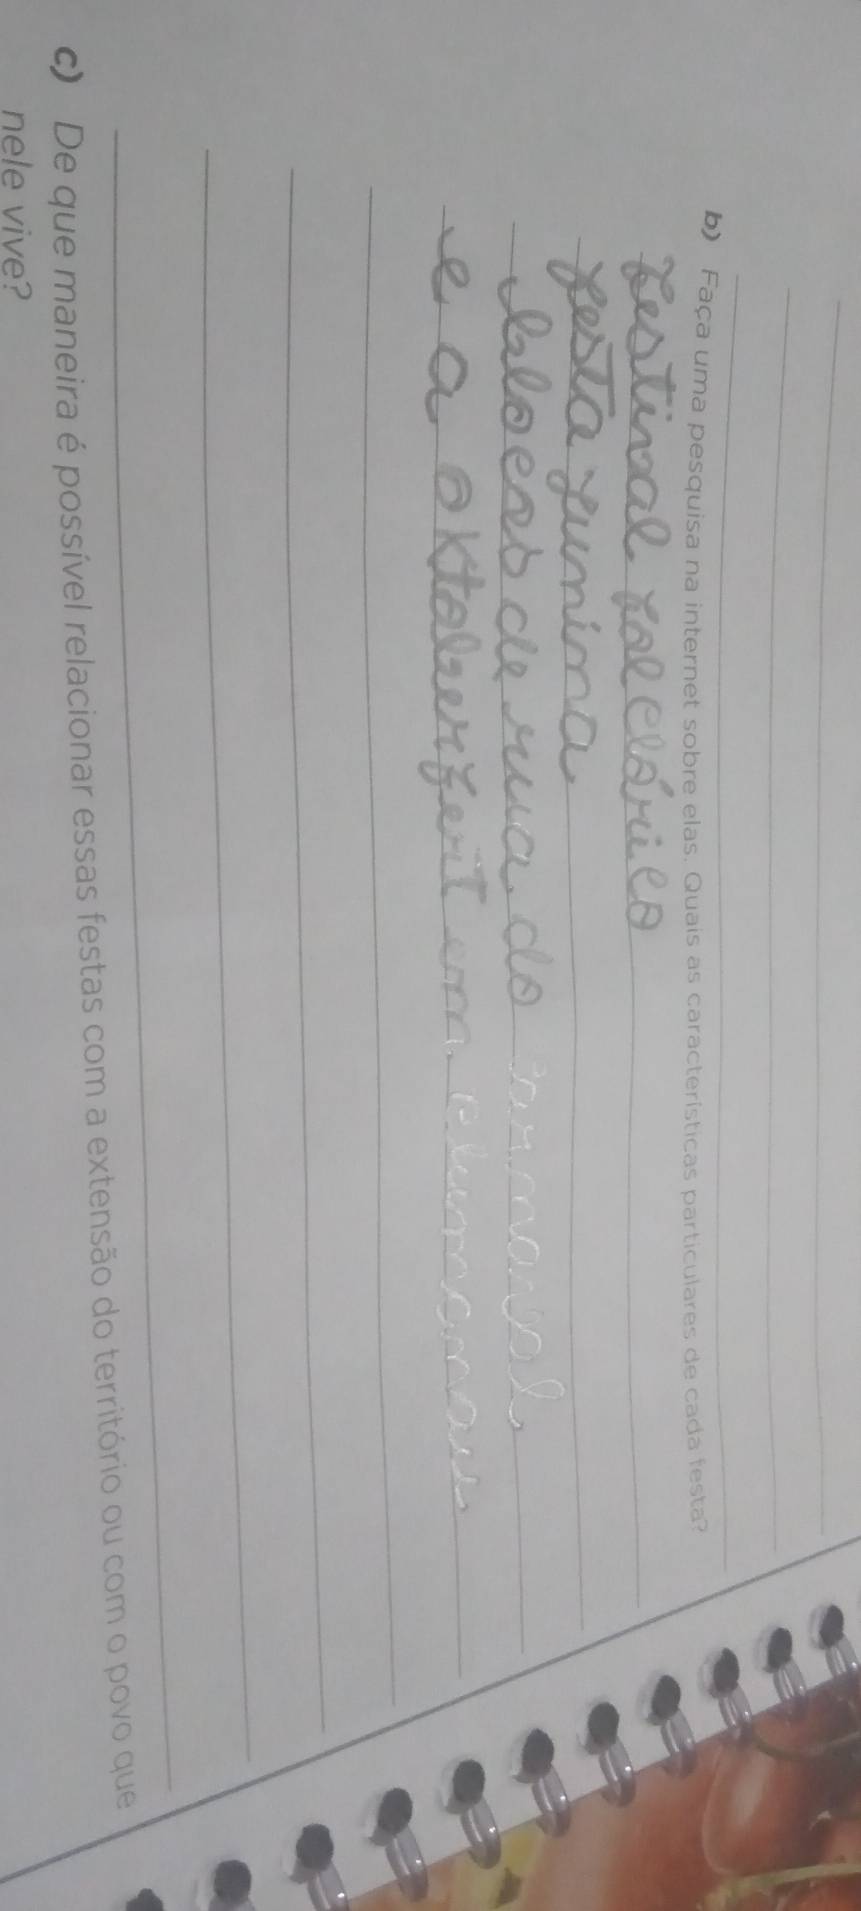 b) Faça uma pesquisa na internet sobre elas. Quais as características particulares de cada festa?
festival folclórico
festa junina
blocos de rua do carnaval
e a oktoberfest em blumenau
c) De que maneira é possível relacionar essas festas com a extensão do território ou com o povo que
nele vive?